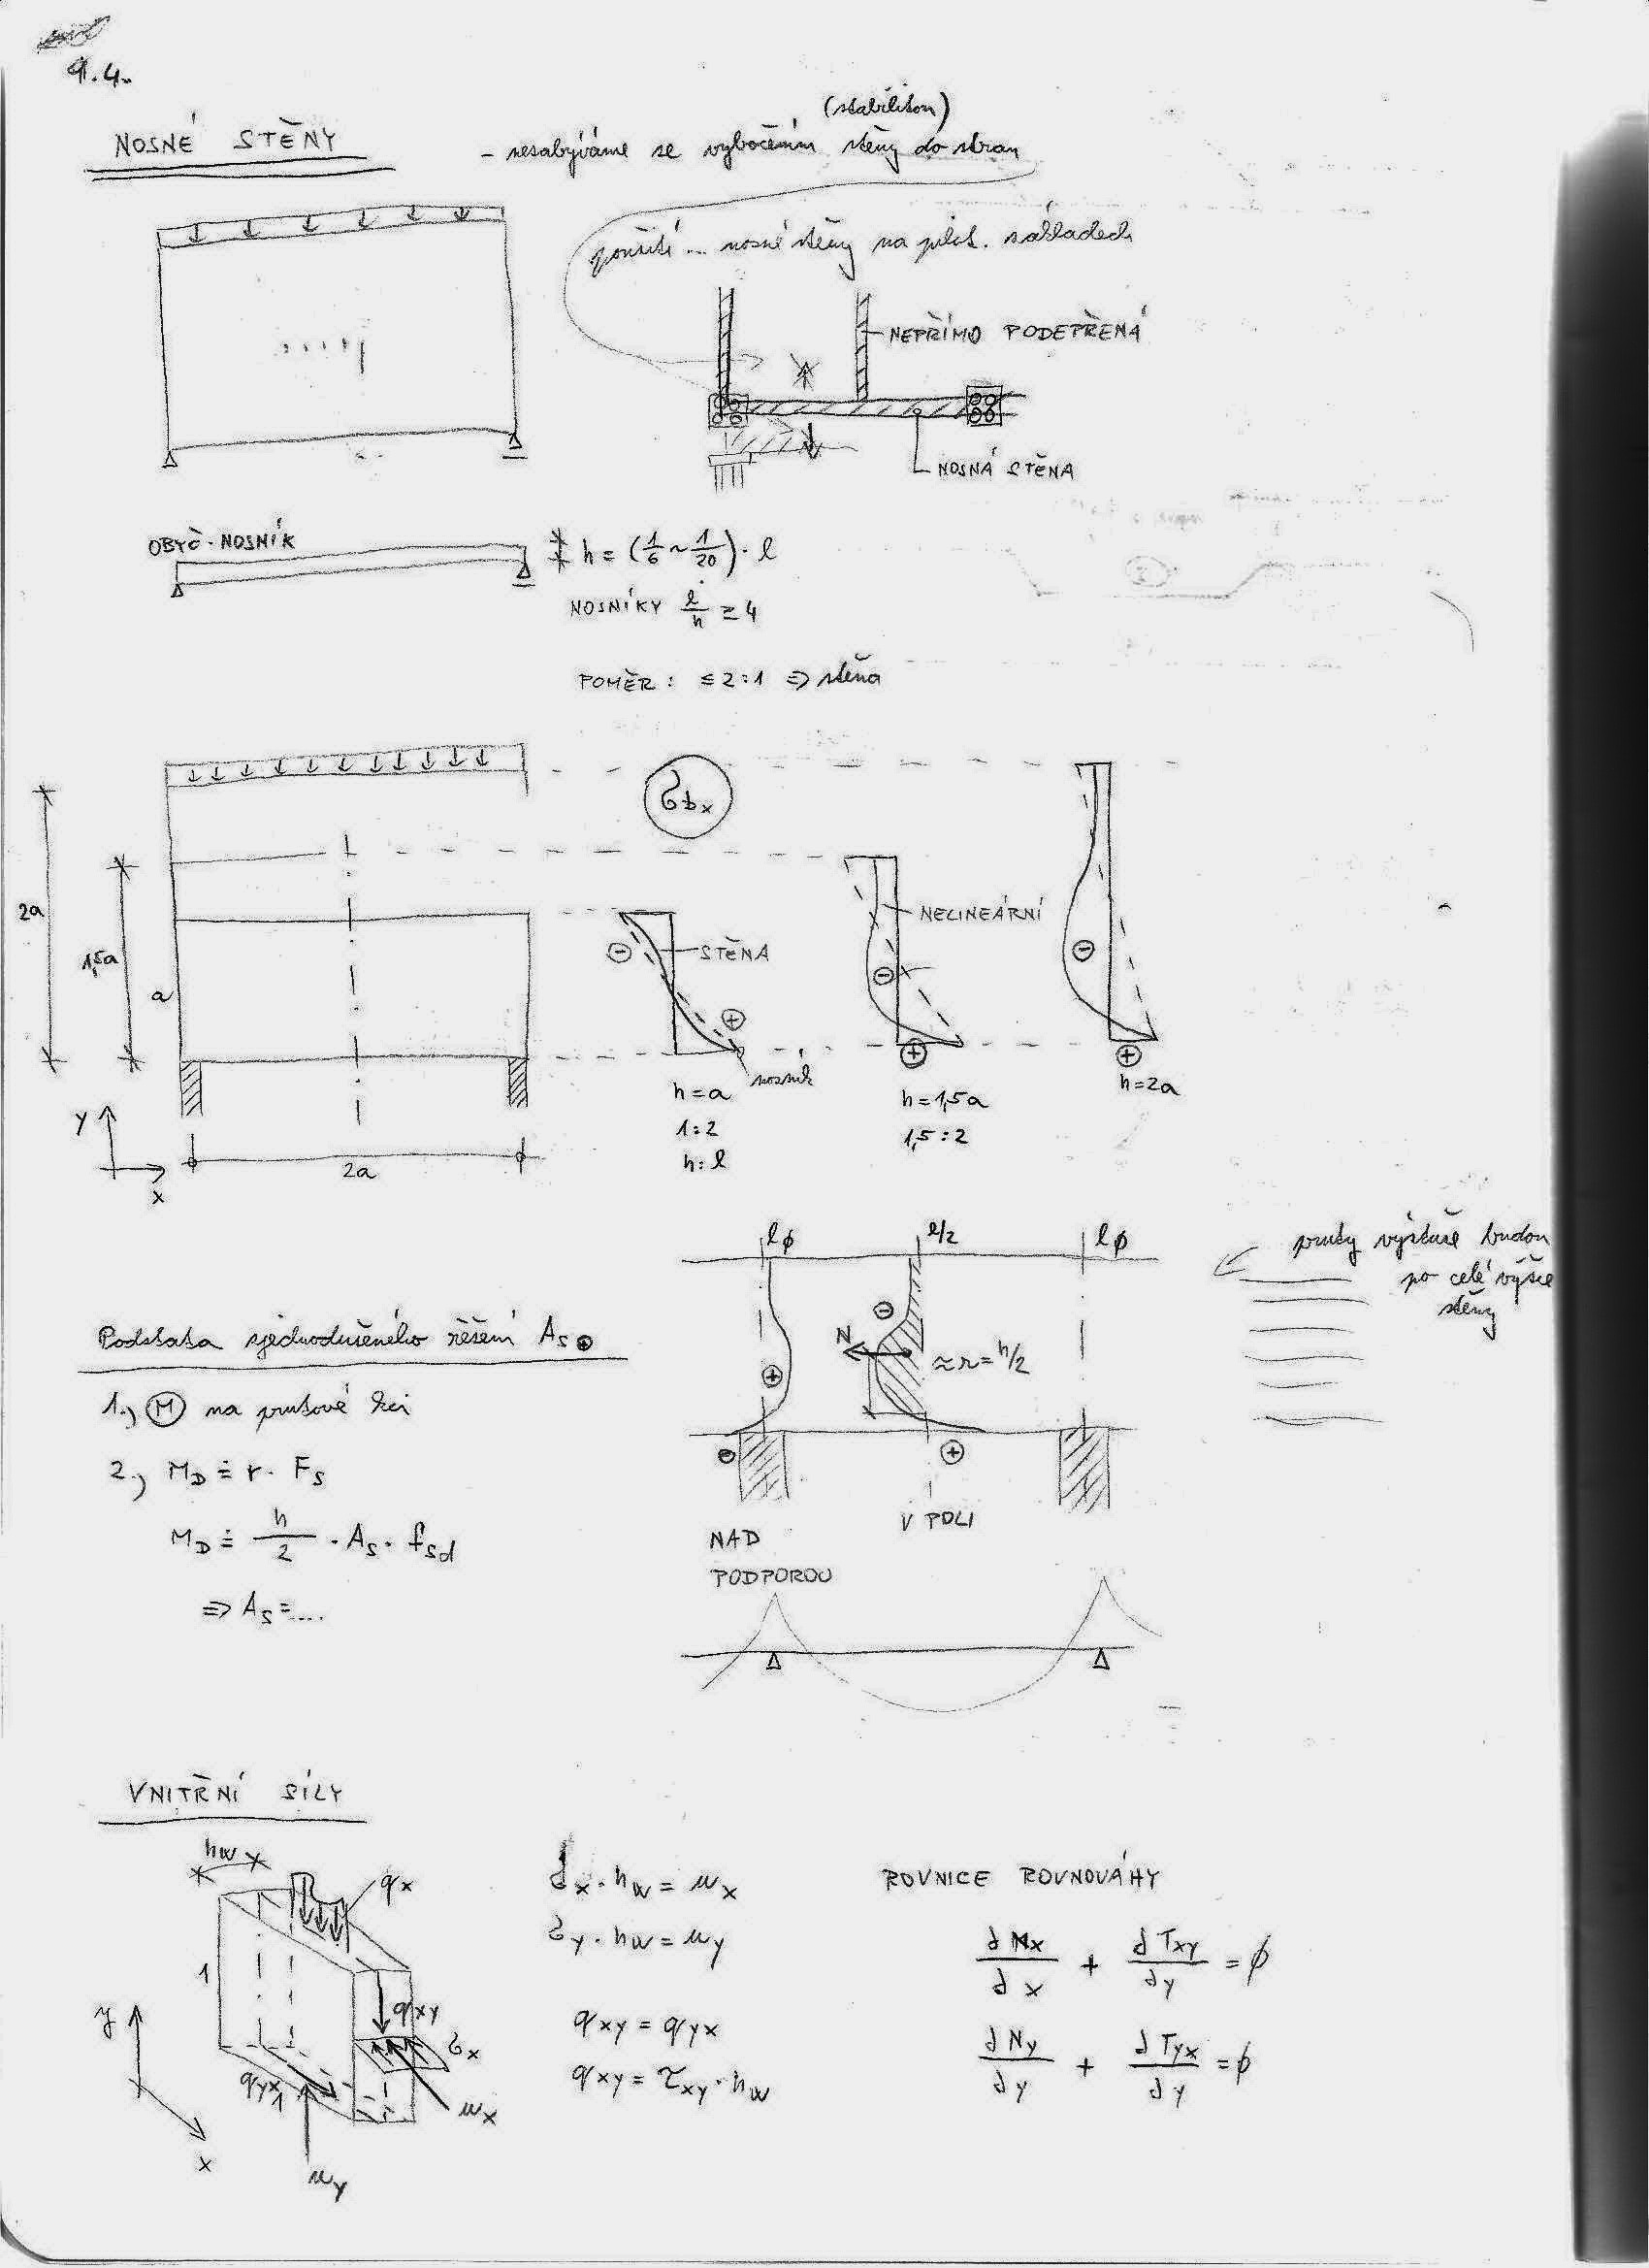 9.4.
NOSNÉ STĚNY
(stabilitou)
- nezabýváme se vybočením stěny do stran
použití ... nosné stěny na pilot. základech
NEPŘÍMO PODEPŘENÁ
NOSNÁ STĚNA
OBYČ. NOSNÍK
h = (1/6 ~ 1/20) · l
NOSNÍKY l/h ≥ 4
POMĚR : ≤ 2:1 ⇒ stěna
σbx
2a
1,5a
a
⊖ STĚNA
⊕
nosník
NELINEÁRNÍ
⊖
⊕
⊖
⊕
h=a
1:2
h:l
h=1,5a
1,5:2
h=2a
Y
x
2a
lϕ
l/2
lϕ
pruty výztuže budou
po celé výšce
stěny
Podstata zjednodušeného řešení As⊕
1.) Ⓜ na prutové kci
2.) MD ≐ r · Fs
MD ≐ h/2 · As · fsd
⇒ As = ....
⊖
N
≈ r = h/2
⊕
⊖
⊕
NAD
PODPOROU
V POLI
VNITŘNÍ SÍLY
hw
qx
1
qxy
σx
qyx
1
nx
ny
y
x
σx · hw = nx
σy · hw = ny
qxy = qyx
qxy = τxy · hw
ROVNICE ROVNOVÁHY
∂Nx/∂x + ∂Txy/∂y = ϕ
∂Ny/∂y + ∂Tyx/∂y = ϕ